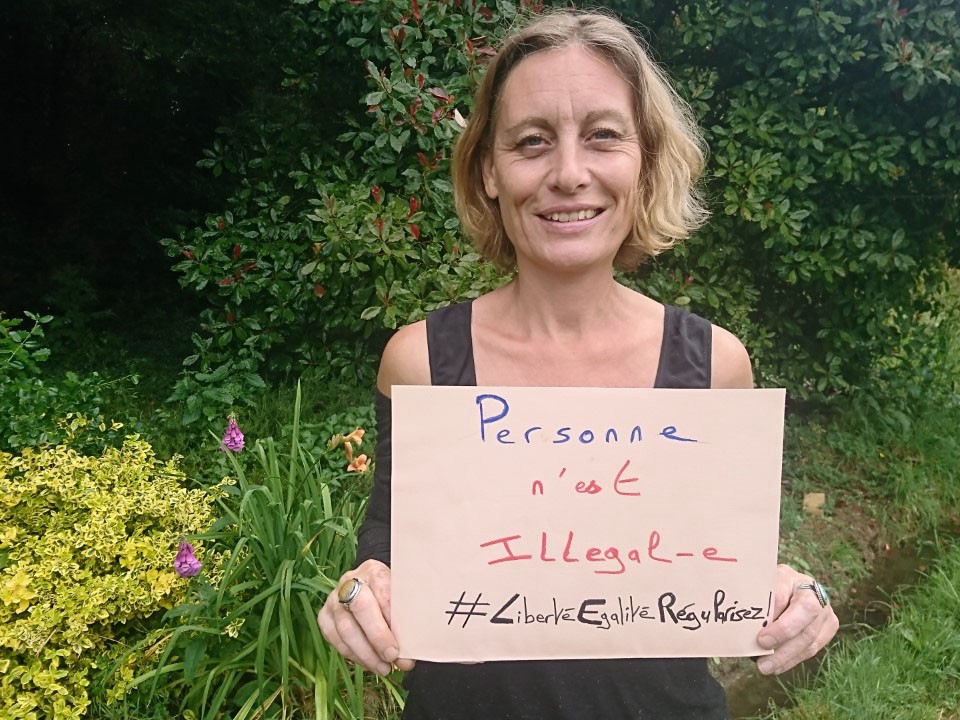 Personne
n'est
ILLegal-e
#LibertéEgalitéRégularisez!